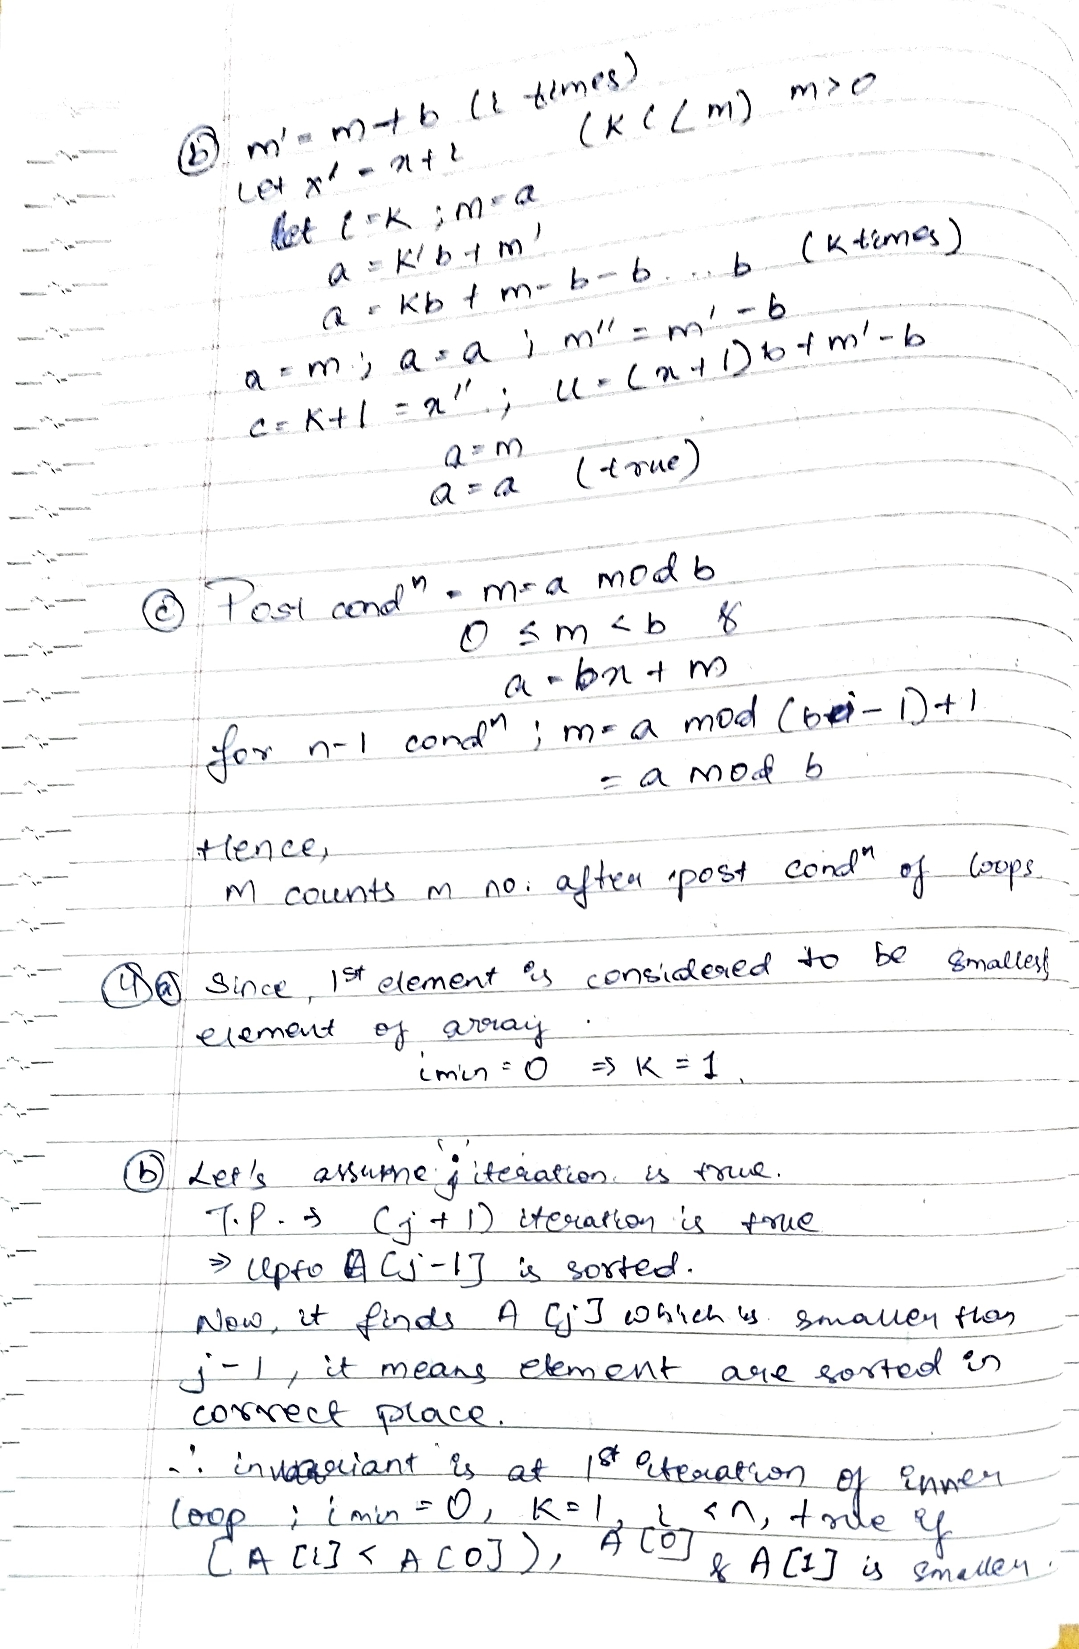 (b) m' = m + b (i times)
Let x' = x + i (K < < m) m > 0
let i = K ; m = a
a = K'b + m'
a = Kb + m - b - b ... b (K times)
a = m ; a = a ; m'' = m' - b
c = K + 1 = x'' ; u = (x + 1)b + m' - b
a = m
a = a (true)
(c) Post condⁿ = m = a mod b
0 ≤ m < b &
a = bx + m
for n-1 condⁿ ; m = a mod (b - 1) + 1
= a mod b
Hence,
m counts m no. after post condⁿ of loops.
(4) (a) Since, 1st element is considered to be smallest
element of array.
imin = 0 => K = 1.
(b) Let's assume 'j' iteration is true.
T.P. → (j + 1) iteration is true
=> Upto A[j-1] is sorted.
Now, it finds A[j] which is smaller than
j-1, it means element are sorted in
correct place.
∴ invariant is at 1st iteration of inner
loop ; imin = 0, K = 1, i < n, true if
[A[i] < A[0]), A[0]
& A[1] is smaller.